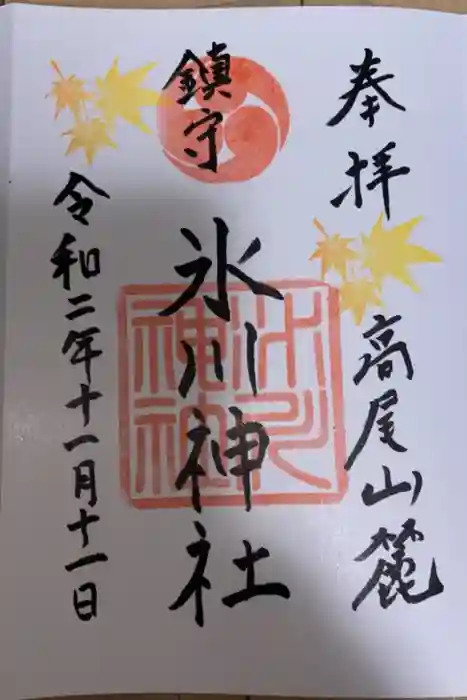 奉拝
高尾山麓
鎮守
氷川神社
令和二年十一月十一日
氷川
神社